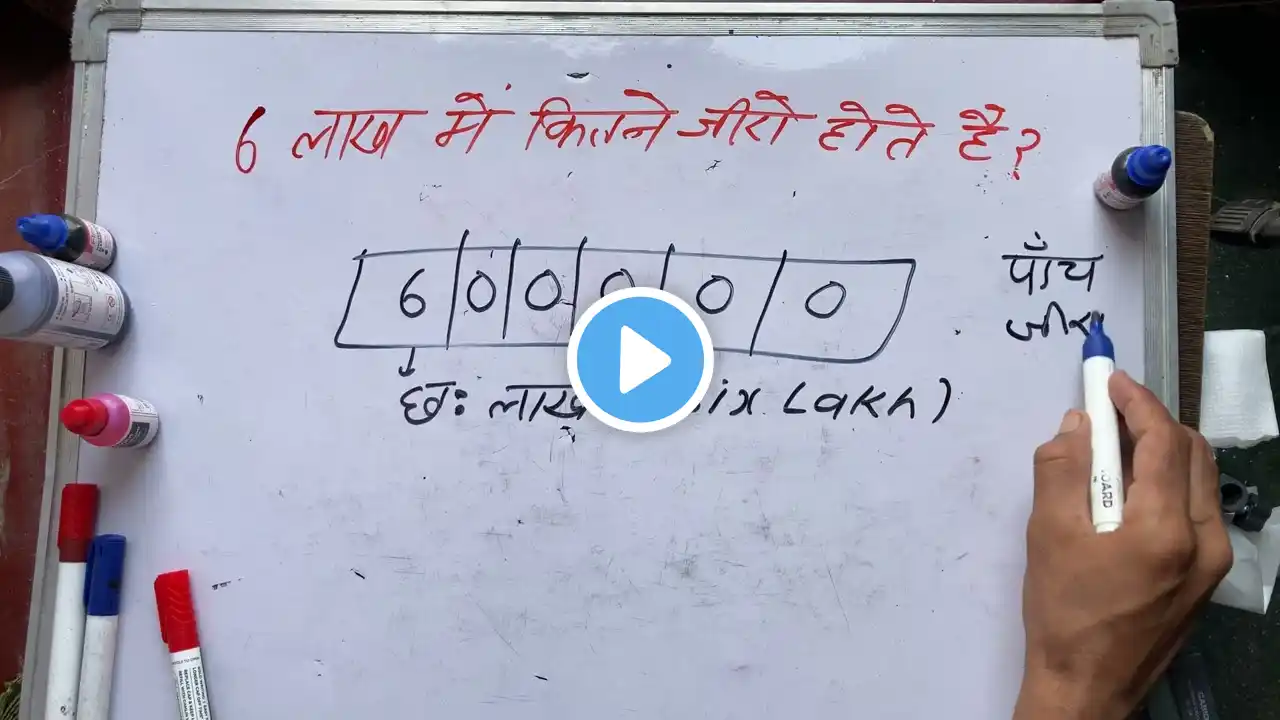 6 लाख में कितने जीरो होते है?
6 0 0 0 0 0
पाँच
छः लाख ix Lakh)
BOARD